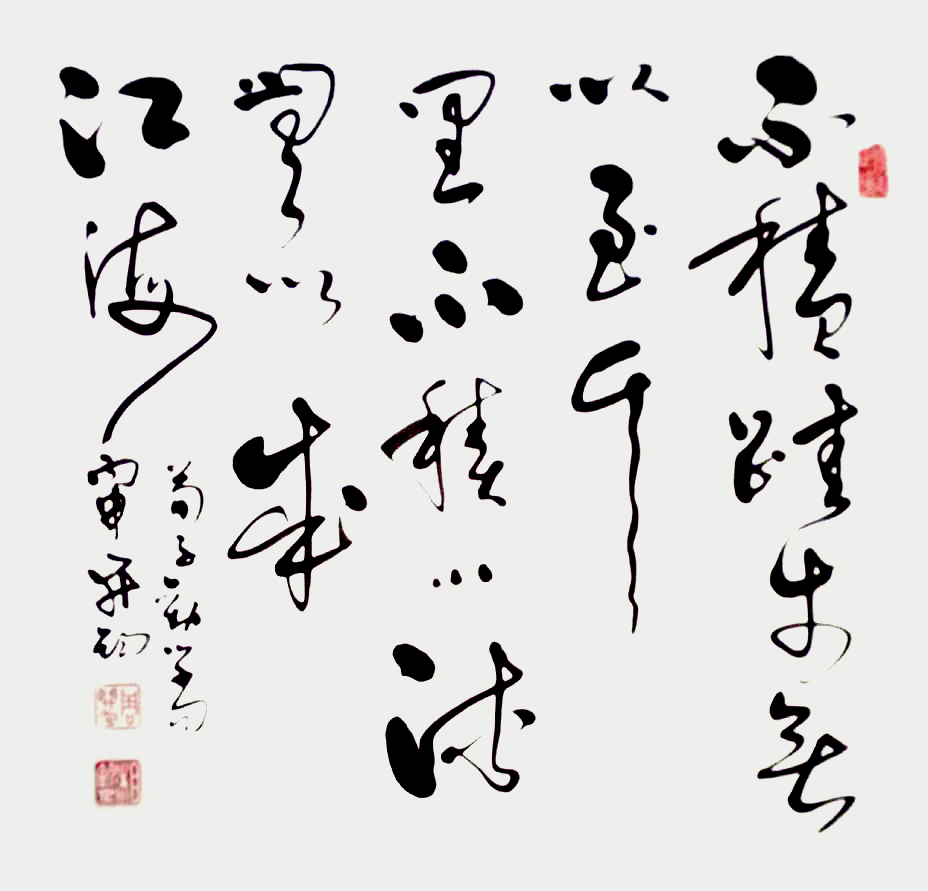 不積跬步無
以至千
里不積小流
無以成
江海
荀子勸學句